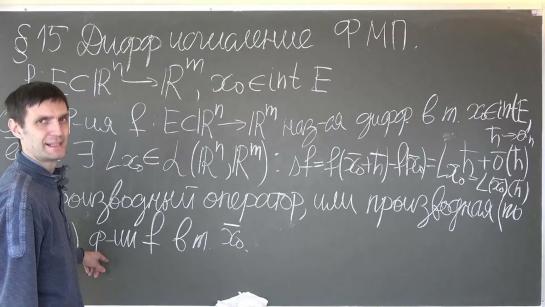 §15 Дифф исчисление ФМП.
f: E⊂ℝⁿ → ℝᵐ, x₀ ∈ int E
ф-ия f: E⊂ℝⁿ → ℝᵐ наз-ая дифф в т. x₀∈int E,
∃ L_x₀ ∈ ℒ(ℝⁿ, ℝᵐ): Δf = f(x̄₀+h̄)-f(x̄₀) = L_x̄₀ h̄ + ō(h̄) h̄→0̄ₙ
= L(x̄₀)(h̄)
оизводный оператор, или производная (по
) ф-ии f в т. x̄₀.